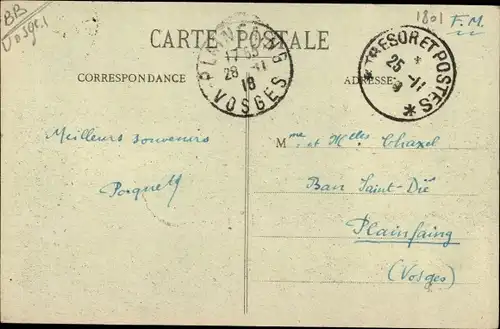 BB
Vosge.1
1801 F.M.
CARTE POSTALE
PLAINFAING
17 55
28 -11
18
VOSGES
* TRESOR ET POSTES *
25 -11
CORRESPONDANCE
ADRESSE
Meilleurs souvenirs
Mme et Melles Chaxel
Ban Saint-Dié
Plainfaing
(Vosges)